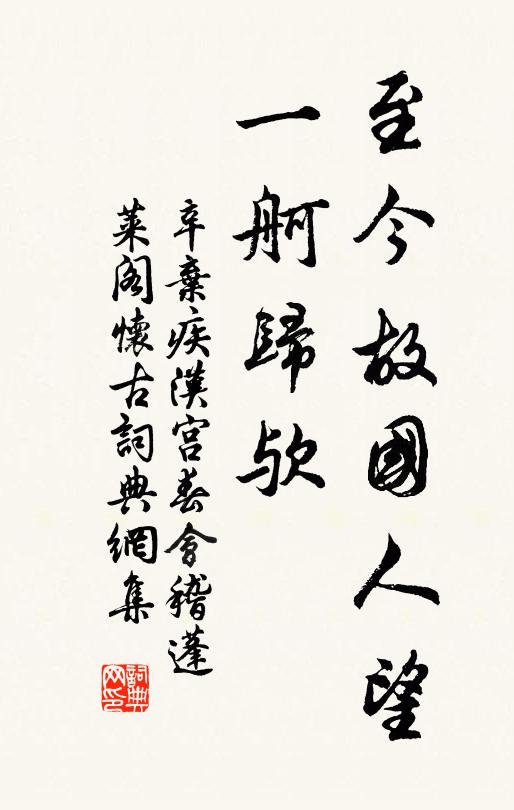 至今故國人望
一舸歸歟
辛棄疾漢宮春會稽蓬
萊閣懷古詞典網集
詞典
网印